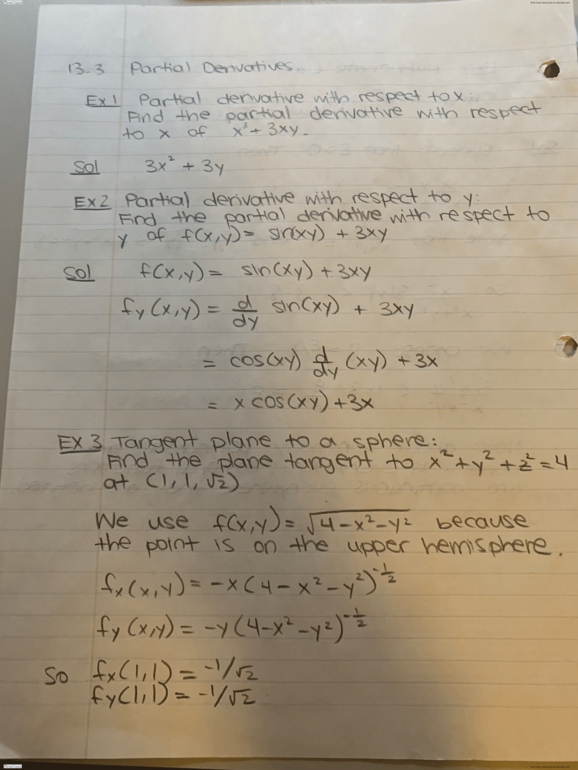 13.3 Partial Derivatives.
Ex 1 Partial derivative with respect to x.
Find the partial derivative with respect
to x of x³ + 3xy.
Sol 3x² + 3y
Ex 2 Partial derivative with respect to y:
Find the partial derivative with respect to
y of f(x,y) = sin(xy) + 3xy
Sol f(x,y) = sin(xy) + 3xy
fy(x,y) = d/dy sin(xy) + 3xy
= cos(xy) d/dy (xy) + 3x
= x cos(xy) + 3x
EX 3 Tangent plane to a sphere:
Find the plane tangent to x² + y² + z² = 4
at (1, 1, √2)
We use f(x,y) = √4 - x² - y² because
the point is on the upper hemisphere.
fx(x,y) = -x(4 - x² - y²)^-1/2
fy(x,y) = -y(4 - x² - y²)^-1/2
So fx(1,1) = -1/√2
fy(1,1) = -1/√2